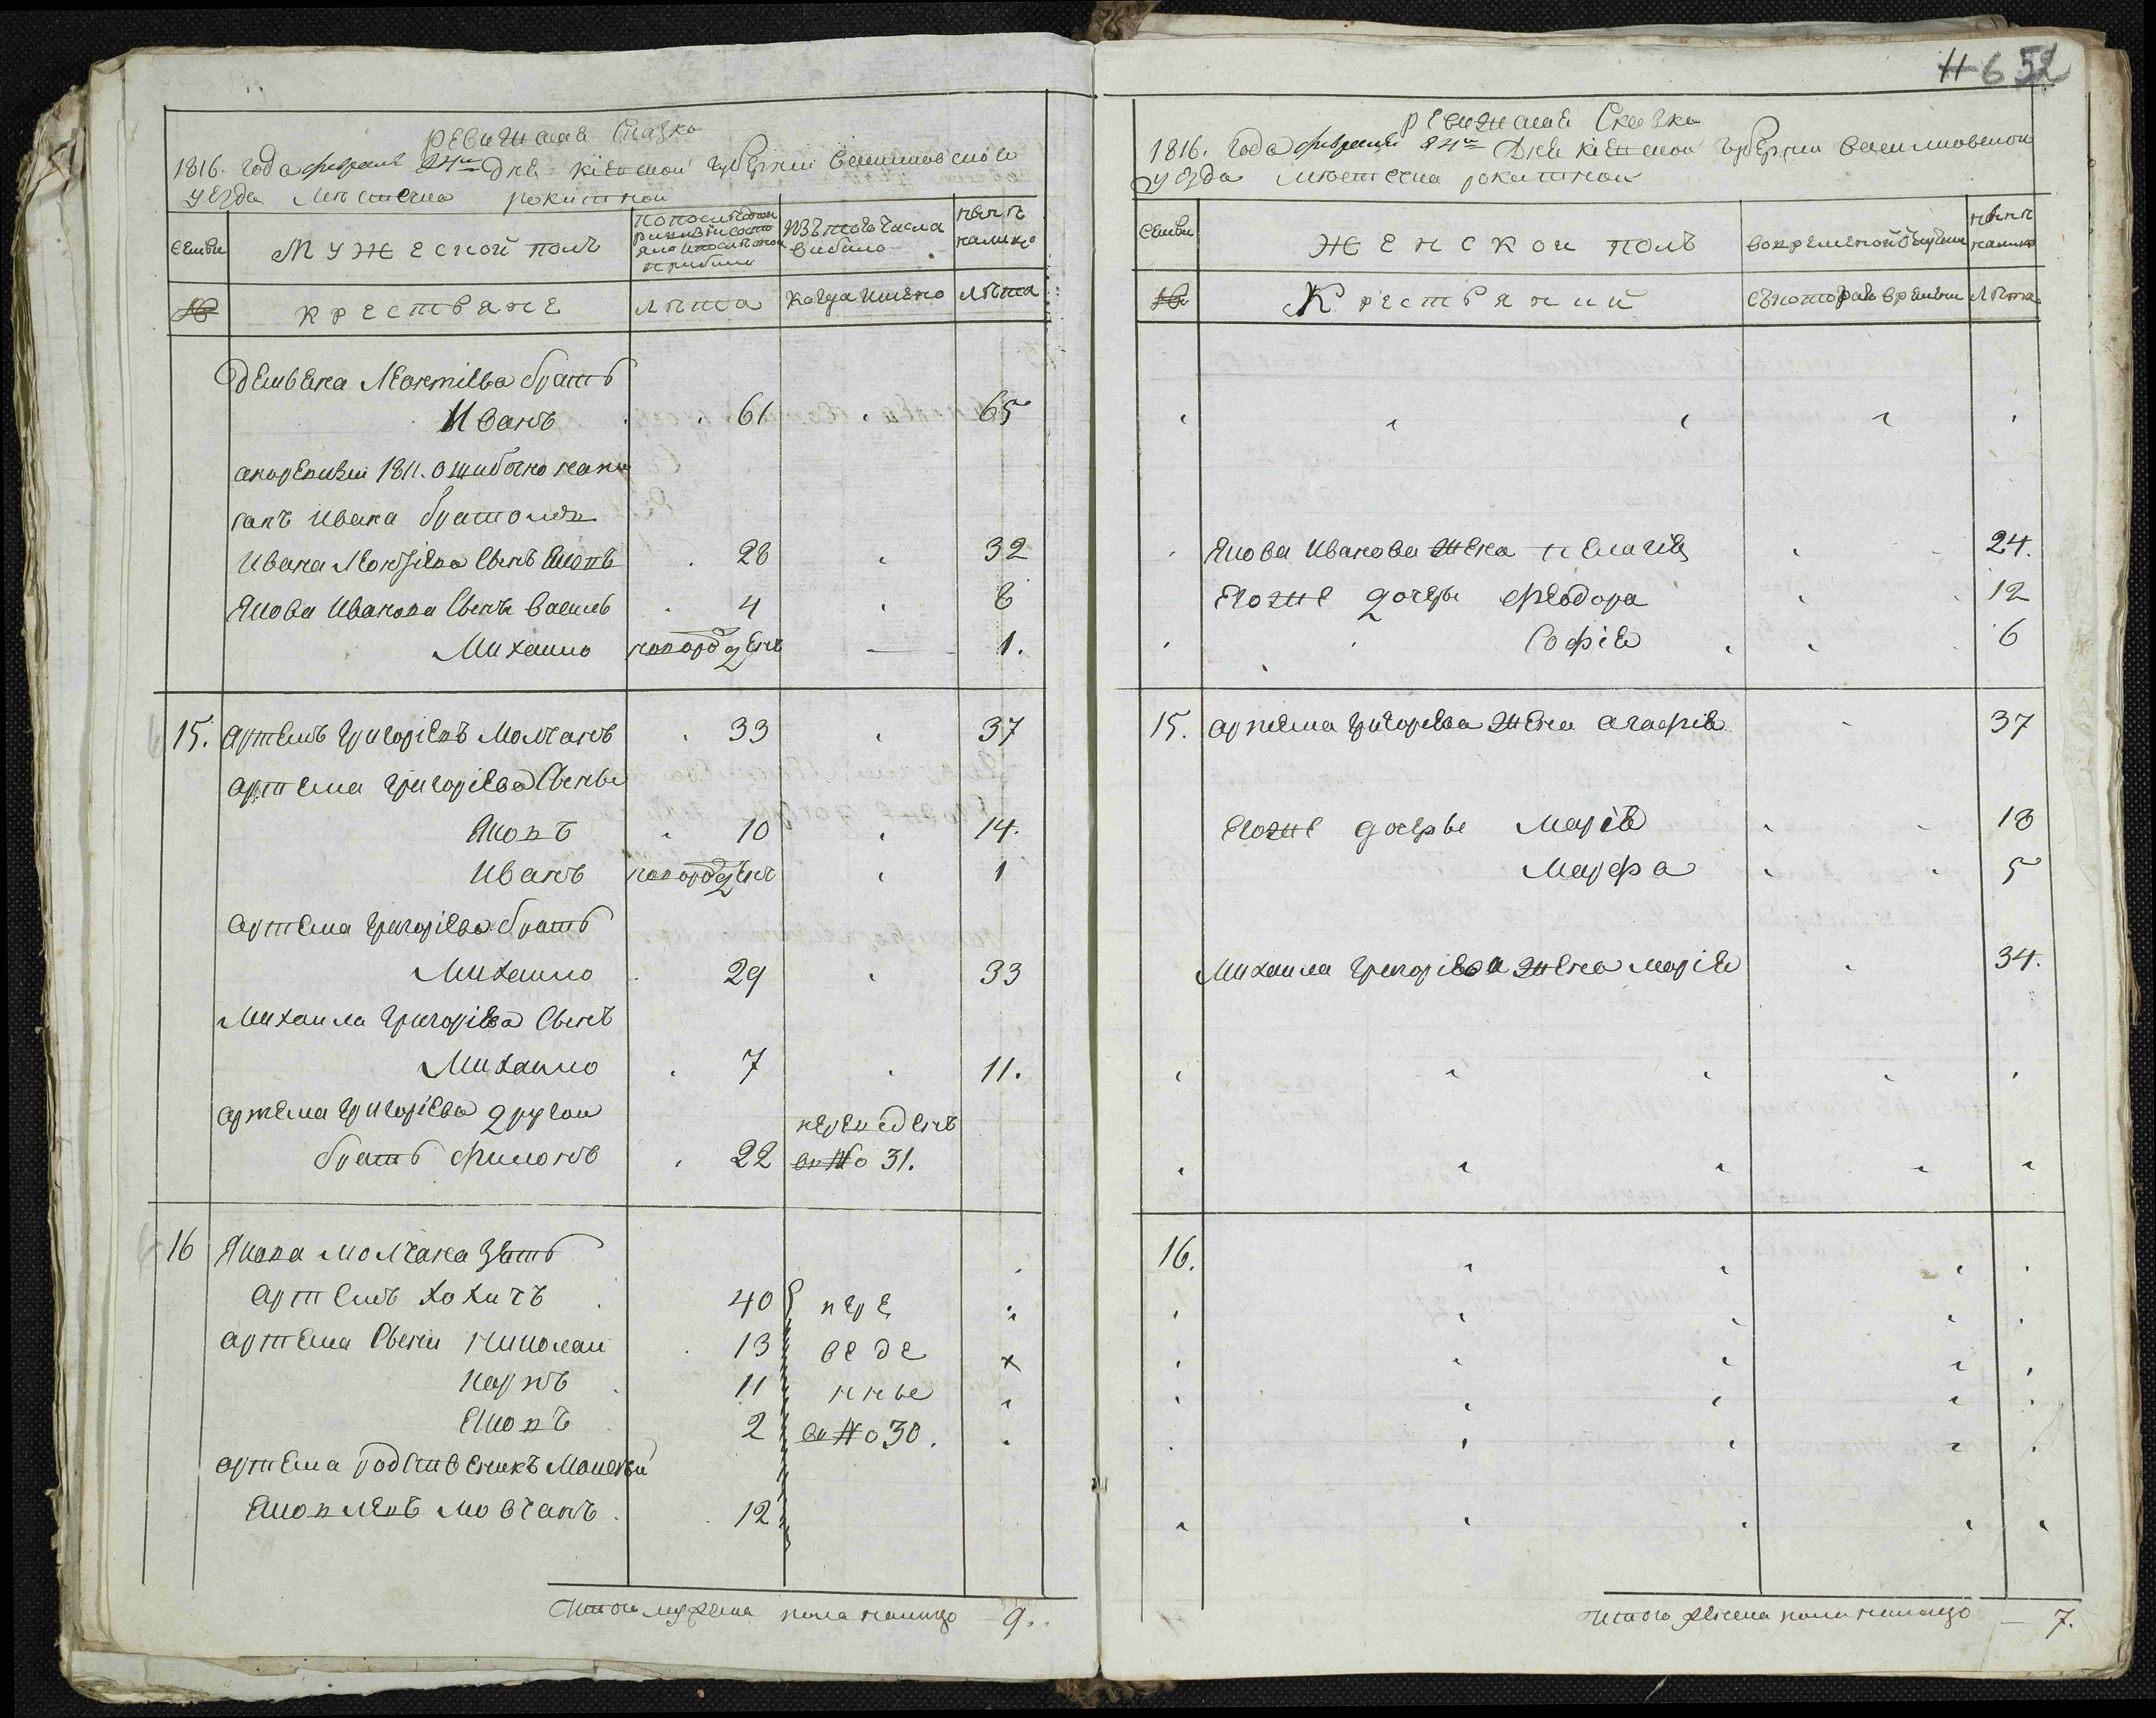 11 6 52
Ревижская Сказка
1816. года февраля 24го дня кіевской губерніи василковского
уезда местечка рокитной
Семьи
Мужеской полъ
По последней ревизіи состояло и после оной прибыло
Изъ того числа выбыло
Ныне налицо
№
крестьяне
лета
когда именно
лета
Демьяна Леонтіева братъ
Иванъ 61 65
а по ревизіи 1811. ошибочно напи
санъ ивана братомъ
Ивана Леонтіева Сынъ Яковъ 28 32
Якова Иванова Сынъ василь 4 8
Михаило новорожденъ 1.
15. Артемъ григоріевъ Молчанъ 33 37
артема григоріева Сыны
Яковъ 10 14.
Иванъ новорожденъ 1
артема григоріева братъ
Михаило 29 33
Михаила григоріева Сынъ
Михаило 7 11.
артема григоріева другой
братъ филонъ 22 переведенъ
в №о 31.
16 Якова молчана зять
артемъ хохичъ 40 пере
артема Сыны николаи 13 веде
карпъ 11 нные
Яковъ 2 в №о 30.
артема родственикъ Мойсей
Яковлевъ мовчанъ 12
Итого мужеска пола налицо 9.
Ревижская Сказка
1816. года февраля 24го дня кіевской губерніи василковской
уезда местечка рокитной
Семьи
Женской полъ
во временной отлучке
ныне налицо
№
Крестьяний
съ котораго времени
лета
Якова Иванова жена пелагія 24.
Егоже дочеры феодора 12
Софія 6
15. артема григорева жена агафія 37
Егоже дочеры Марія 18
Марфа 5
Михаила григоріева жена марія 34.
16.
Итого женска пола налицо — 7.